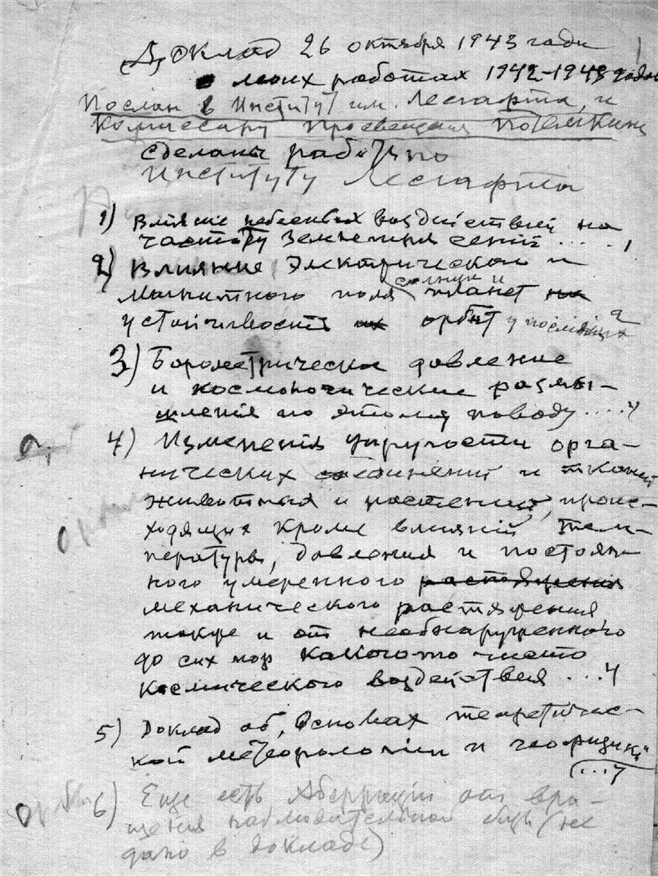 Доклад 26 октября 1943 года
о моих работах 1942-1943 годов
Послан в Институт им. Лесгафта, и
Комиссару просвещения Потемкину
сделаны работы по
Институту Лесгафта
1) Влияние небесных воздействий на
частоту землетрясений ....,
2) Влияние Электрического и
солнца и
магнитного поля планет на
устойчивость их орбит у последних
3) Барометрическое давление
и космогонические размы-
шления по этому поводу ....4
4) Изменения упругости орга-
нических соединений и тканей
животных и растений, проис-
ходящих кроме влияний тем-
пературы, давления и постоян-
ного умеренного растяжения
механического растяжения
также и от необнаруженного
до сих пор какого то чисто
космического воздействия ...4
5) Доклад об, Основах теоретичес-
кой метеорологии и геофизики"
...7
6) Еще есть Аберрации от вра-
щения наблюдательной (не
дано в докладе)